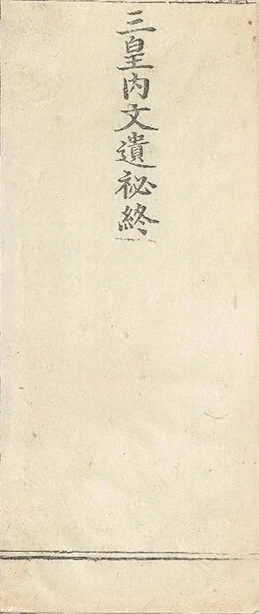 三皇內文遺祕終